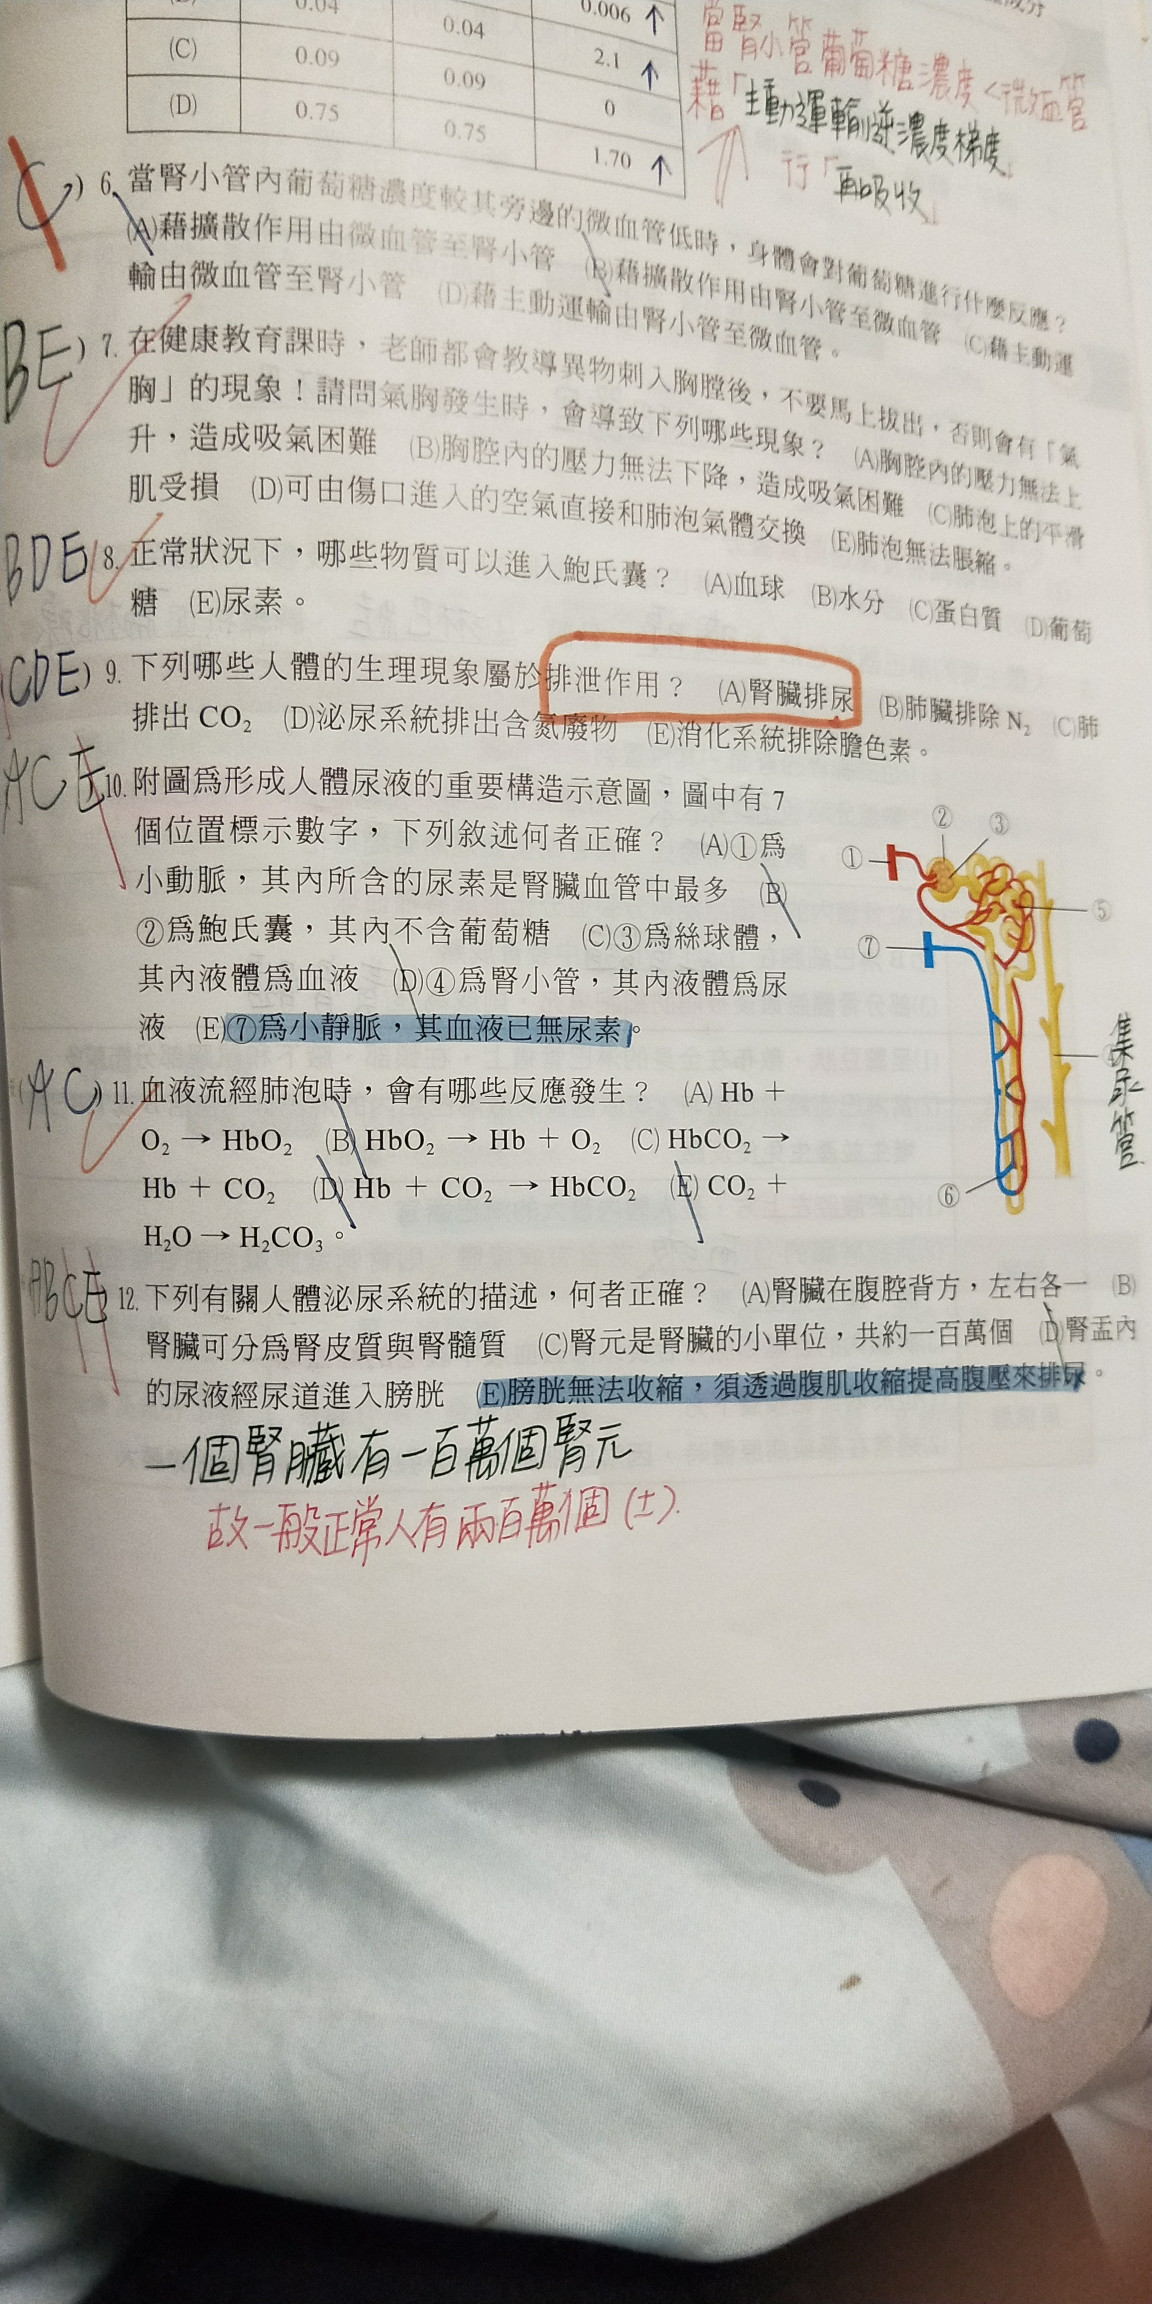 0.04
0.04
0.006 ↑
(C) 0.09 0.09 2.1 ↑
(D) 0.75 0.75 0
1.70 ↑
當腎小管葡萄糖濃度<微血管
藉「主動運輸逆濃度梯度」
行「再吸收」
C) 6. 當腎小管內葡萄糖濃度較其旁邊的微血管低時，身體會對葡萄糖進行什麼反應？
(A)藉擴散作用由微血管至腎小管 (B)藉擴散作用由腎小管至微血管 (C)藉主動運
輸由微血管至腎小管 (D)藉主動運輸由腎小管至微血管。
BE) 7. 在健康教育課時，老師都會教導異物刺入胸膛後，不要馬上拔出，否則會有「氣
胸」的現象！請問氣胸發生時，會導致下列哪些現象？ (A)胸腔內的壓力無法上
升，造成吸氣困難 (B)胸腔內的壓力無法下降，造成吸氣困難 (C)肺泡上的平滑
肌受損 (D)可由傷口進入的空氣直接和肺泡氣體交換 (E)肺泡無法脹縮。
BDE 8. 正常狀況下，哪些物質可以進入鮑氏囊？ (A)血球 (B)水分 (C)蛋白質 (D)葡萄
糖 (E)尿素。
CDE) 9. 下列哪些人體的生理現象屬於排泄作用？ (A)腎臟排尿 (B)肺臟排除 N₂ (C)肺
排出 CO₂ (D)泌尿系統排出含氮廢物 (E)消化系統排除膽色素。
ACE 10. 附圖為形成人體尿液的重要構造示意圖，圖中有 7
個位置標示數字，下列敘述何者正確？ (A)①為
小動脈，其內所含的尿素是腎臟血管中最多 (B)
②為鮑氏囊，其內不含葡萄糖 (C)③為絲球體，
其內液體為血液 (D)④為腎小管，其內液體為尿
液 (E)⑦為小靜脈，其血液已無尿素。
① ② ③ ⑤ ⑦ ⑥
集尿管
AC) 11. 血液流經肺泡時，會有哪些反應發生？ (A) Hb +
O₂ → HbO₂ (B) HbO₂ → Hb + O₂ (C) HbCO₂ →
Hb + CO₂ (D) Hb + CO₂ → HbCO₂ (E) CO₂ +
H₂O → H₂CO₃。
ABCE 12. 下列有關人體泌尿系統的描述，何者正確？ (A)腎臟在腹腔背方，左右各一 (B)
腎臟可分為腎皮質與腎髓質 (C)腎元是腎臟的小單位，共約一百萬個 (D)腎盂內
的尿液經尿道進入膀胱 (E)膀胱無法收縮，須透過腹肌收縮提高腹壓來排尿。
一個腎臟有一百萬個腎元
故一般正常人有兩百萬個(±).